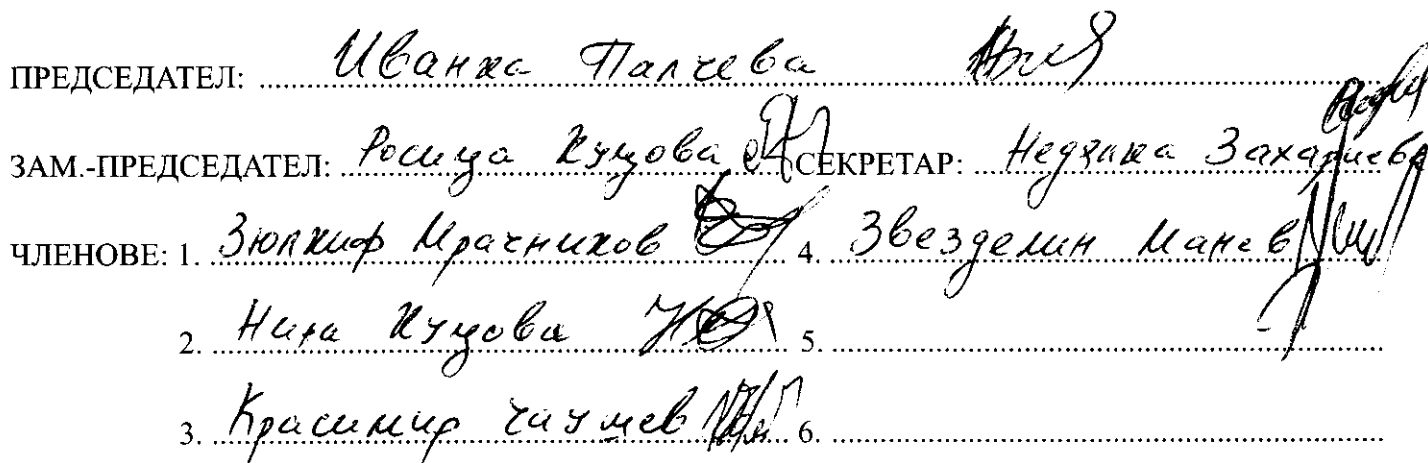 ПРЕДСЕДАТЕЛ: Иванка Палчева
ЗАМ.-ПРЕДСЕДАТЕЛ: Росица Куцова СЕКРЕТАР: Недялка Захариева
ЧЛЕНОВЕ: 1. Зюлкиф Мрачников 4. Звезделин Манев
2. Нина Куцова 5.
3. Красимир Чаушев 6.